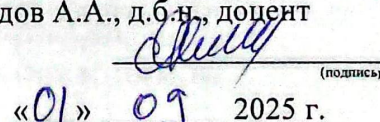 дов А.А., д.б.н., доцент
(подпись)
«01» 09 2025 г.